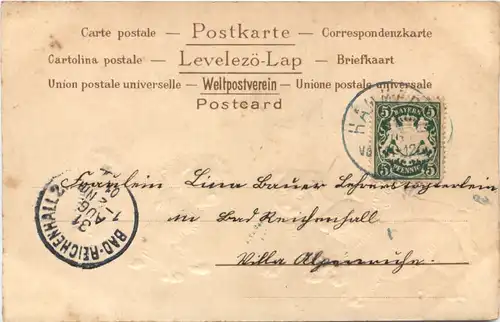 Carte postale — Postkarte — Correspondenzkarte
Cartolina postale — Levelezö-Lap — Briefkaart
Union postale universelle — Weltpostverein — Unione postale universale
Postcard
BAYERN
5 5
5 5
PFENNIG
BAD-REICHENHALL 2
31
AUG.
Fräulein Lina Bauer Lehrerstochterlein
in Bad Reichenhall
Villa Alpenruhe.